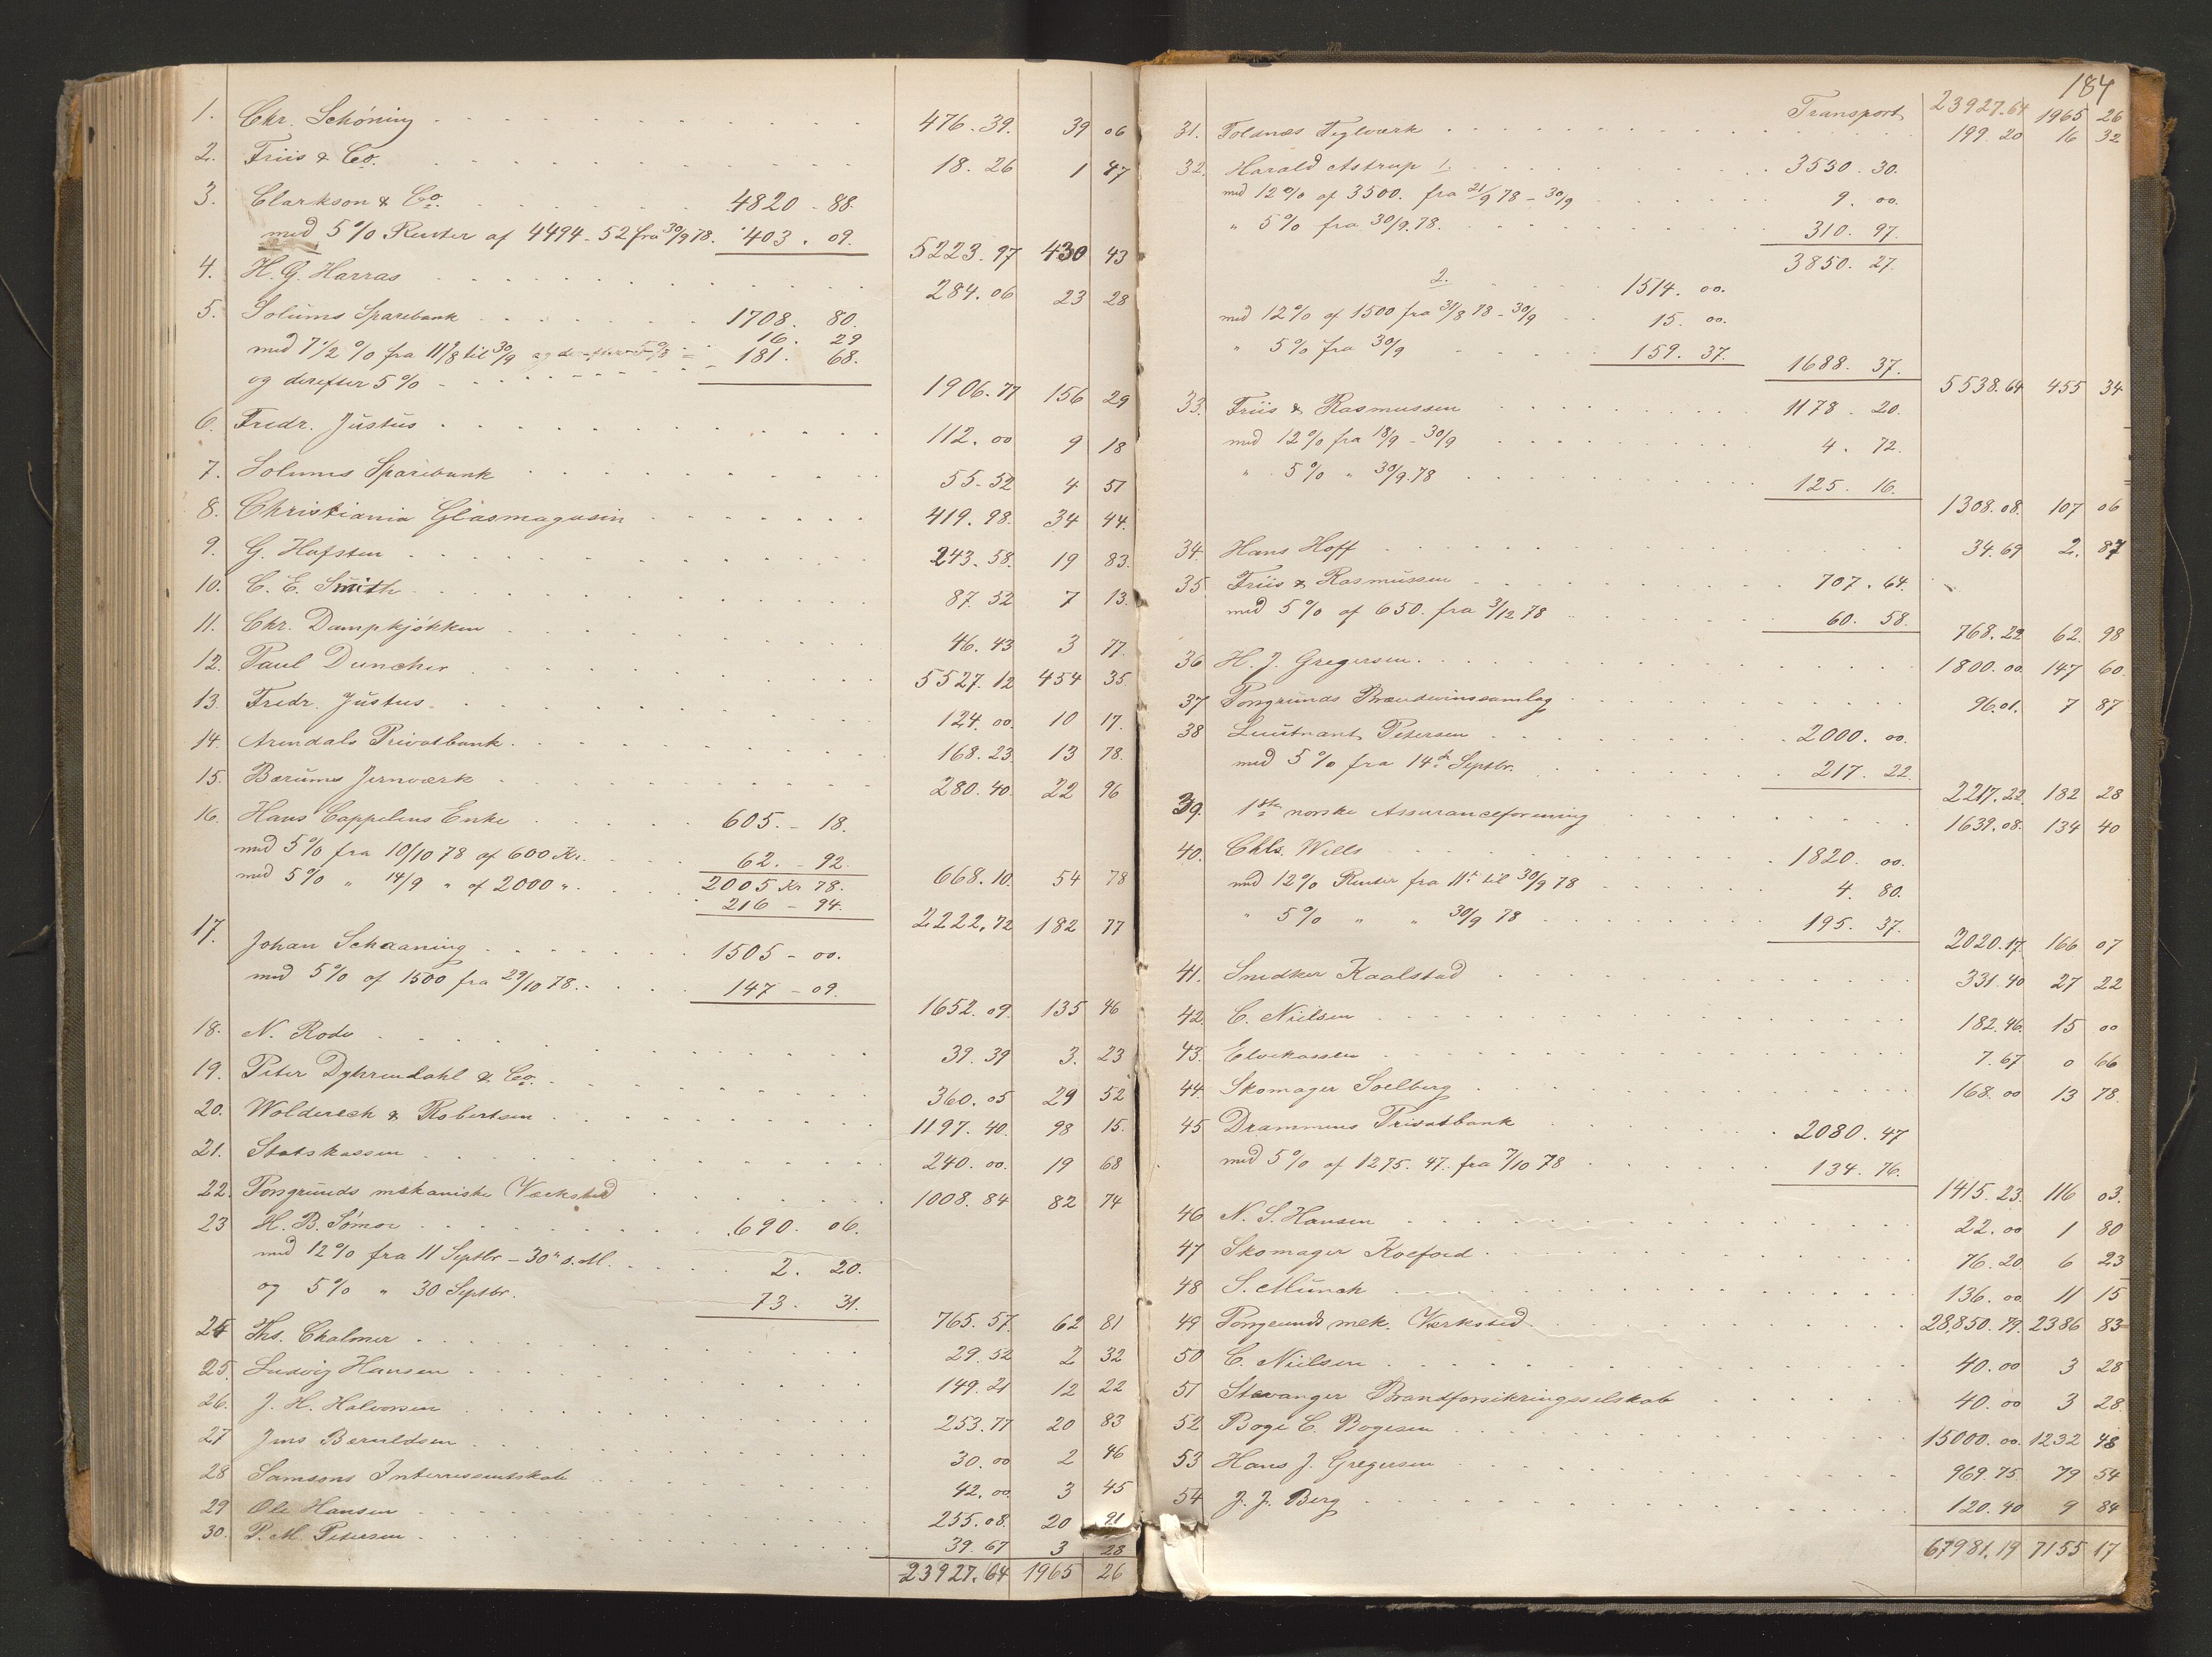 1. Chr. Schöning 476. 39. 39 06
2. Friis & Co. 18. 26 1 47
3. Clarkson & Co. 4820 - 88.
med 5 % Renter af 4494 - 52 fra 30/9 78. 403. 09. 5223. 97 430 43
4. H. G. Harras 284. 06 23 28
5. Solums Sparebank 1708. 80.
16. 29
med 7 1/2 % fra 11/8 til 30/9 181. 68.
og derefter 5 % 1906. 77 156 29
6. Fredr. Justus 112. 00 9 18
7. Solums Sparebank 55 - 52 4 57
8. Christiania Glasmagasin 419. 98. 34 44.
9. G. Hafsten 243. 58. 19 83.
10. C. E. Smith 87. 52 7 13.
11. Chr. Dampkjøkken 46. 43 3 77.
12. Paul Duncker 5527. 12 454 35.
13. Fredr. Justus 124. 00. 10 17.
14. Arendals Privatbank 168. 23. 13 78.
15. Bærums Jernværk 280. 40. 22 96
16. Hans Cappelens Enke 605. - 18.
med 5 % fra 10/10 78 af 600 Kr. 62. - 92. 668. 10. 54 78
med 5 % " 14/9 " af 2000 " 2005 Kr 78.
216 - 94. 2222, 72 182 77
17. Johan Schaaning 1505 - 00.
med 5 % af 1500 fra 29/10 78. 147 - 09. 1652. 09. 135 46
18. N. Rode 39. 39 3. 23
19. Peter Dyhrendahl & Co. 360. 05 29 52
20. Woldereck & Robertsen 1197. 40. 98 15.
21. Statskassen 240. 00. 19 68
22. Porsgrunds mekaniske Værksted 1008. 84 82 74
23 H. B. Sømor 690. 06.
med 12 % fra 11 Septbr - 30" s. M. 2. 20.
og 5 % " 30 Septbr. 73. 31. 765. 57. 62 81
24 Ths. Chalmer 29. 52 2 32
25. Ludvig Hansen 149. 21 12 22
26. J. H. Halvorsen 253. 77 20 83
27 Jens Beruldsen 30. 00 2 46
28 Samsons Interressentskab 42. 00. 3 45
29 Ole Hansen 255. 08. 20 91
30. P. M. Petersen 39. 67 3 28
23927. 64 1965 26
184
Transport 23927. 64 1965 26
31. Tolsnæs Teglværk 199. 20 16 32
32. Harald Astrup 1. 3530. 30.
med 12 % af 3500. fra 21/9 78 - 30/9 9. 00.
" 5 % fra 30/9. 78. 310. 97.
3850. 27.
2. 1514. 00.
med 12 % af 1500 fra 31/8 78 - 30/9 15. 00.
" 5 % fra 30/9 159. 37. 1688. 37. 5538. 64 455 34
33. Friis & Rasmussen 1178. 20.
med 12 % fra 18/9 - 30/9 4. 72.
" 5 % " 30/9. 78 125. 16. 1308. 08. 107 06
34. Hans Hoff 34. 69 2. 87
35 Friis & Rasmussen 707. 64.
med 5 % af 650. fra 3/12 78 60. 58. 768. 22 62. 98
36 H. J. Gregersen 1800. 00. 147 60.
37 Porsgrunds Brændevinssamlag 96. 01. 7 87
38 Lieutnant Petersen 2000. 00.
med 5 % fra 14de Septbr. 217. 22. 2217. 22. 182 28
39. 1ste norske Assuranceforening 1639. 08. 134 40
40. Chls. Wells 1820. 00.
med 12 % Renter fra 11te til 30/9 78 4. 80.
" 5 % " " 30/9 78 195. 37. 2020. 17. 166 07
41. Snedker Kaalstad 331. 40 27 22
42. C. Nielsen 182. 46. 15 00
43. Elvekassen 7. 67 0 66
44. Skomager Soelberg 168. 00 13 78.
45 Drammens Privatbank 2080. 47
med 5 % af 1275. 47. fra 7/10 78 134. 76. 1415. 23. 116 03.
46 N. S. Hansen 22. 00 1 80
47 Skomager Koefoed 76. 20. 6 23
48 S. Munch 136. 00 11 15
49 Porsgrunds mek. Værksted 28,850. 79. 2386 83
50 C. Nielsen 40. 00 3 28
51 Stavanger Brandforsikringsselskab 40. 00 3 28
52 Boge C. Bogesen 15000. 00. 1232 48
53 Hans J. Gregersen 969. 75. 79 54
54 J. J. Berg 120. 40 9 84
67981. 19 7155 17